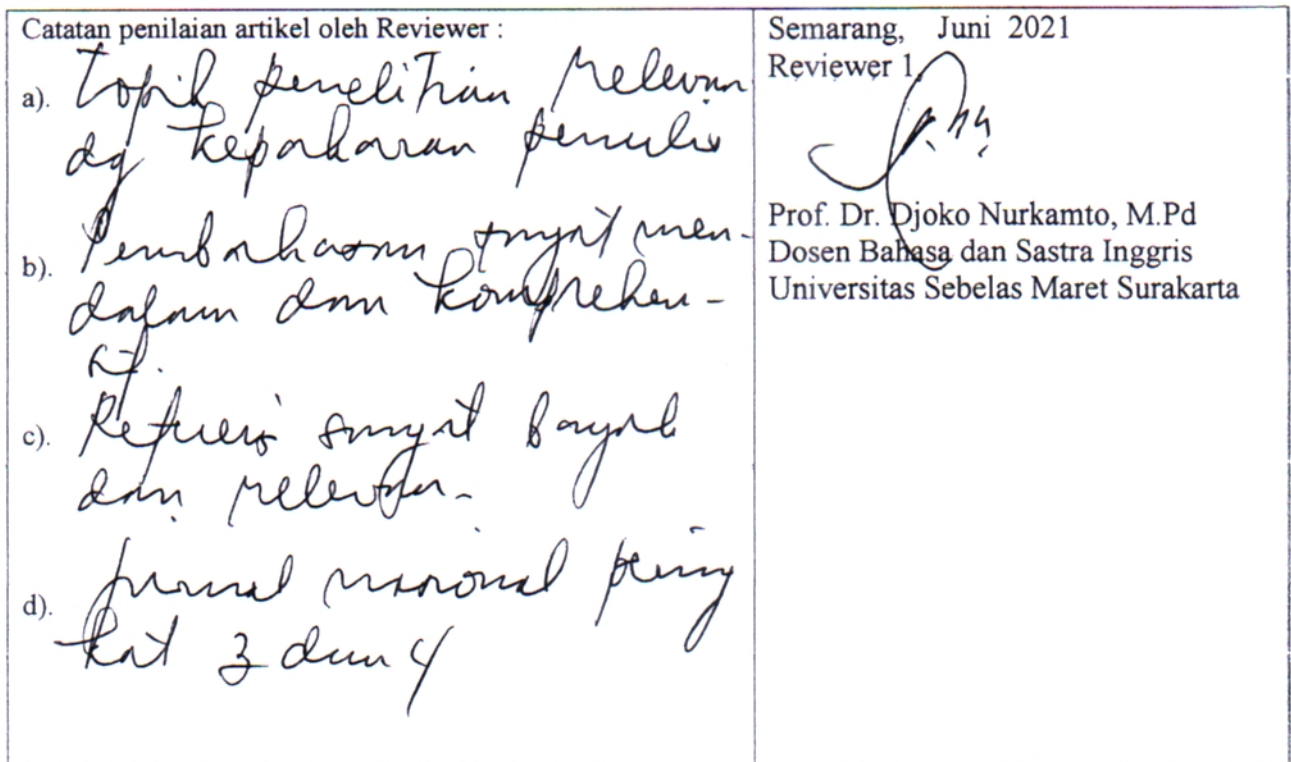 Catatan penilaian artikel oleh Reviewer :
a). Topik penelitian relevan
dg kepakaran penulis
b). Pembahasan sangat men-
dalam dan komprehen-
sif.
c). Referensi sangat banyak
dan relevan.
d). Jurnal nasional pering
kat 3 dan 4
Semarang, Juni 2021
Reviewer 1,
Prof. Dr. Djoko Nurkamto, M.Pd
Dosen Bahasa dan Sastra Inggris
Universitas Sebelas Maret Surakarta